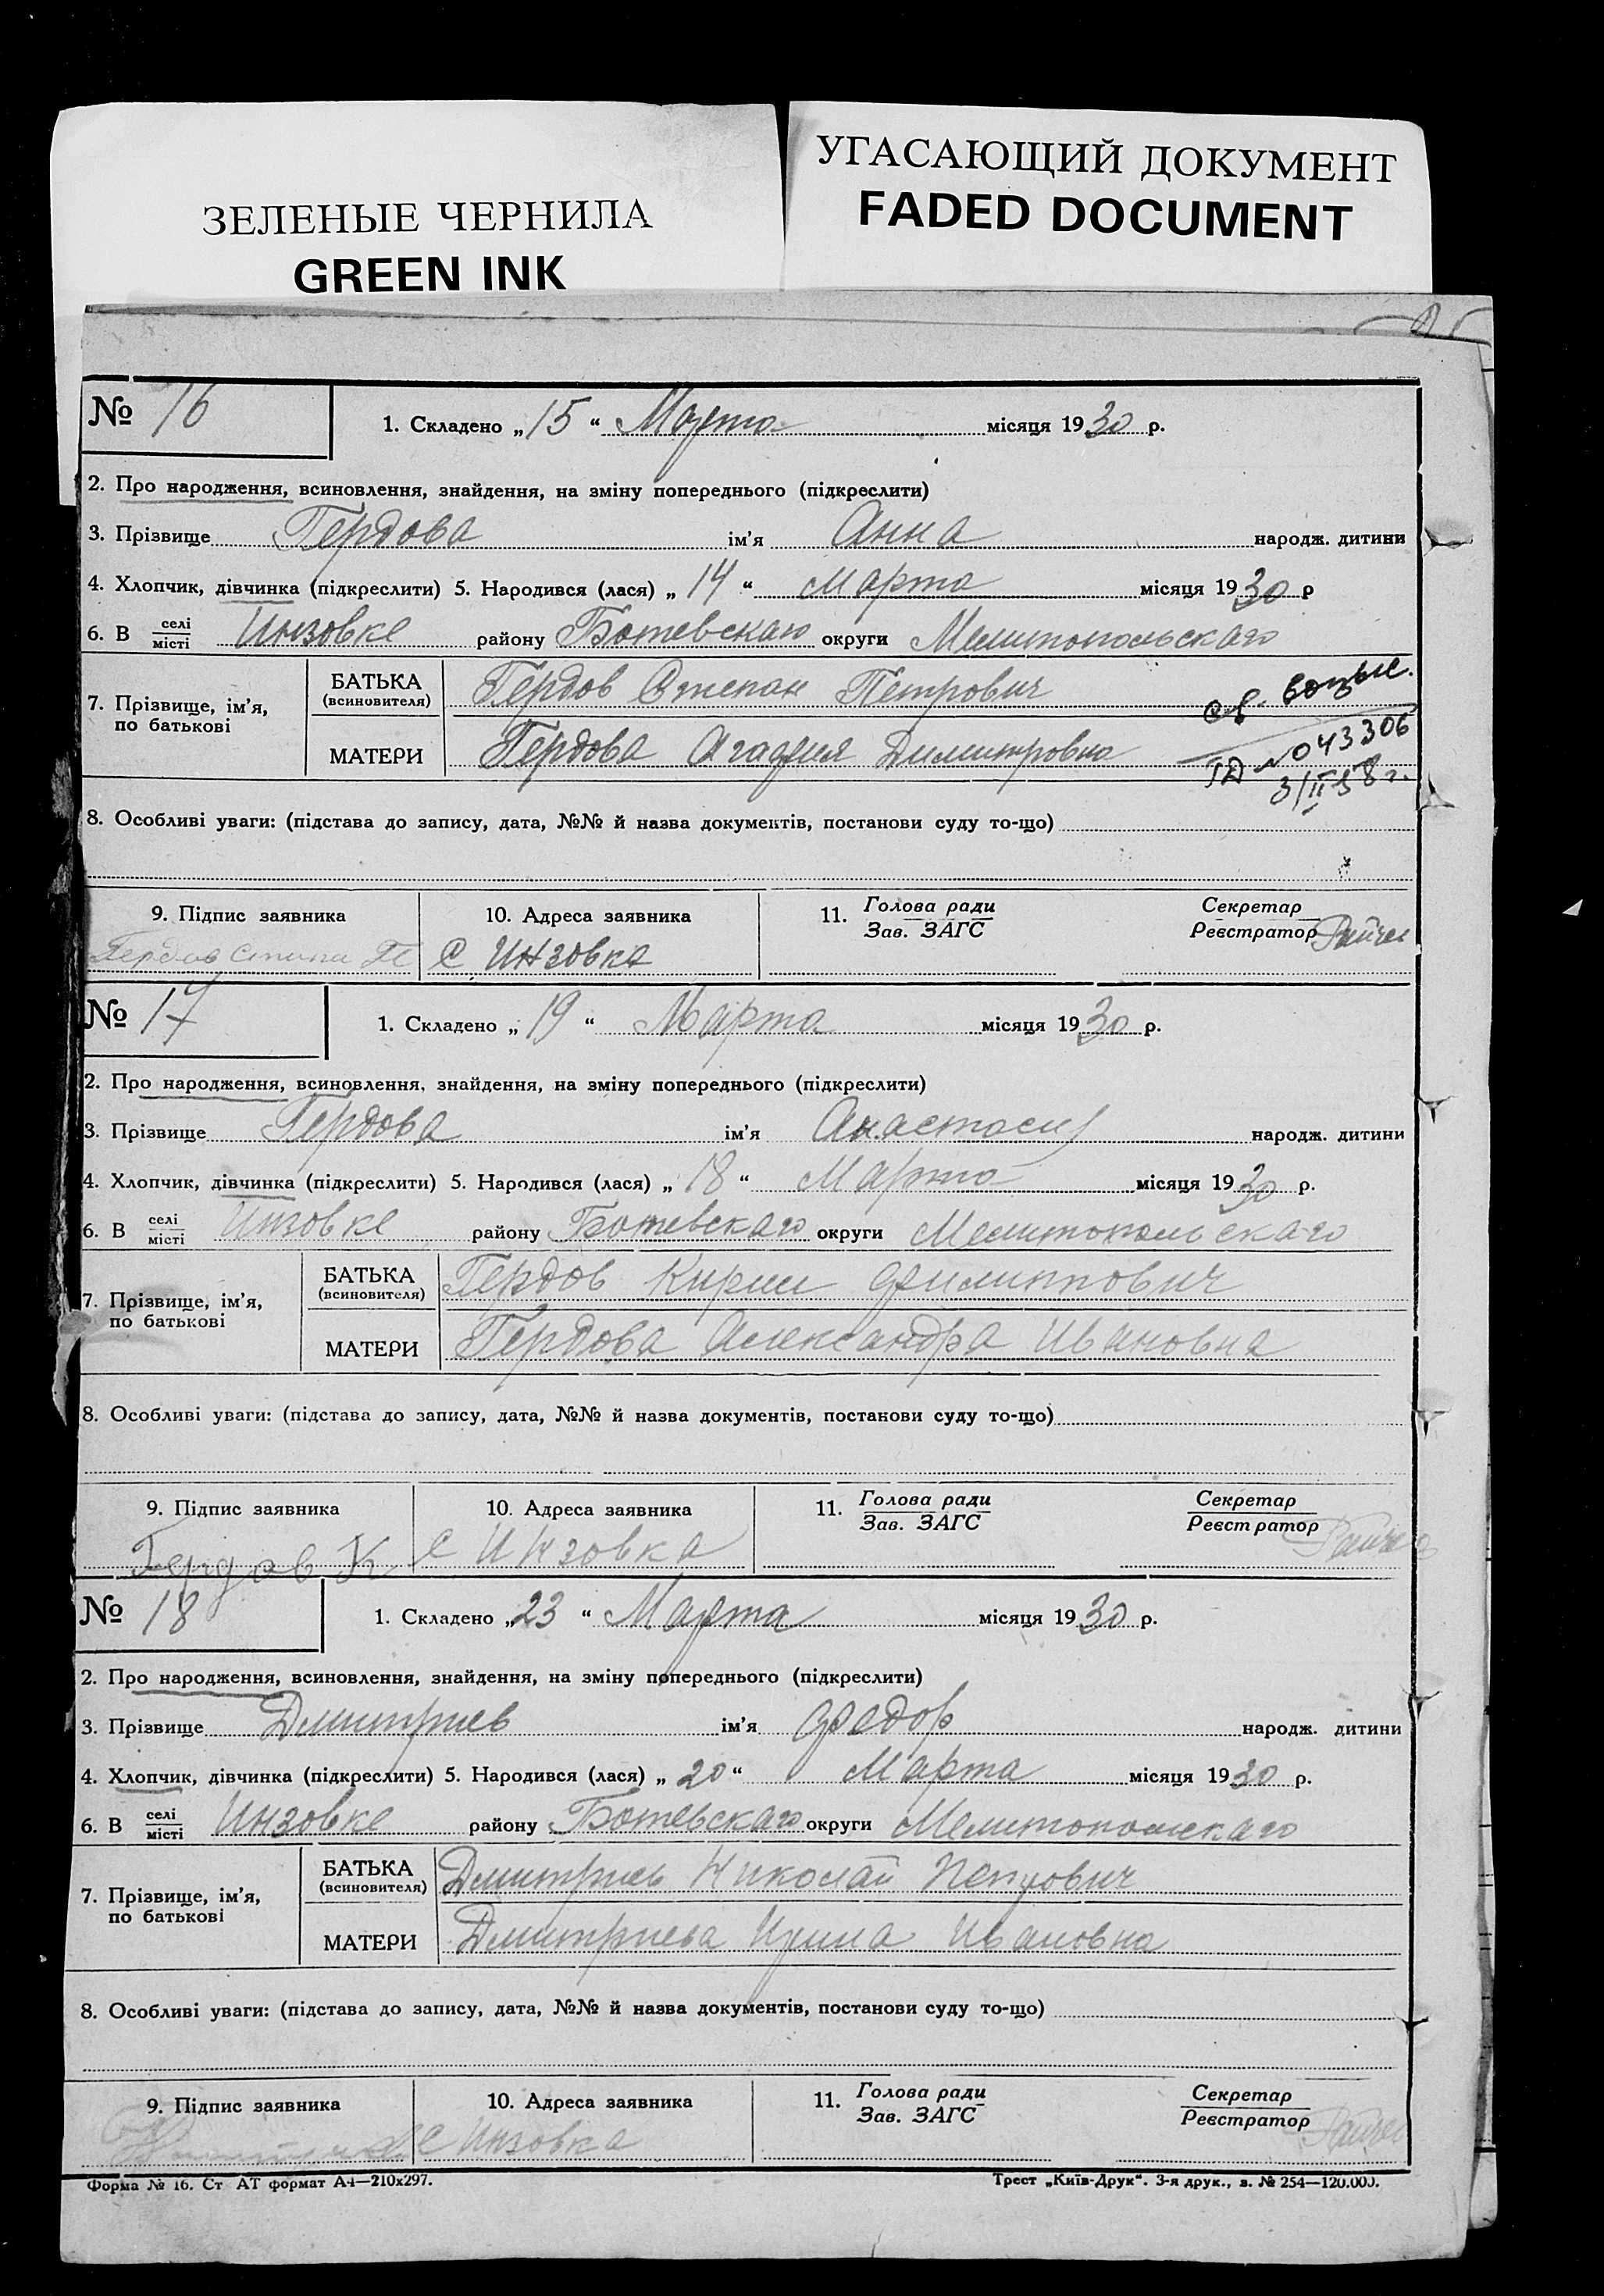 ЗЕЛЕНЫЕ ЧЕРНИЛА
GREEN INK
УГАСАЮЩИЙ ДОКУМЕНТ
FADED DOCUMENT
№ 16
1. Складено „15“ Марта місяця 1930 р.
2. Про народження, всиновлення, знайдення, на зміну попереднього (підкреслити)
3. Прізвище Гердова ім’я Анна народж. дитини
4. Хлопчик, дівчинка (підкреслити) 5. Народився (лася) „14“ Марта місяця 1930 р
6. В селі/місті Инзовке району Ботевскаго округи Мелитопольскаго
7. Прізвище, ім’я, по батькові
БАТЬКА (всиновителя) Гердов Степан Петрович
МАТЕРИ Гердова Агафия Димитровна
№ 043306
3/II 58 г.
8. Особливі уваги: (підстава до запису, дата, №№ й назва документів, постанови суду то-що)
9. Підпис заявника 10. Адреса заявника 11. Голова ради Секретар
Зав. ЗАГС Реєстратор Райчев
Гердов П С Инзовка
№ 17
1. Складено „19“ Марта місяця 1930 р.
2. Про народження, всиновлення, знайдення, на зміну попереднього (підкреслити)
3. Прізвище Гердова ім’я Анастасия народж. дитини
4. Хлопчик, дівчинка (підкреслити) 5. Народився (лася) „18“ Марта місяця 1930 р.
6. В селі/місті Инзовке району Ботевскаго округи Мелитопольскаго
7. Прізвище, ім’я, по батькові
БАТЬКА (всиновителя) Гердов Кирил Филиппович
МАТЕРИ Гердова Александра Ивановна
8. Особливі уваги: (підстава до запису, дата, №№ й назва документів, постанови суду то-що)
9. Підпис заявника 10. Адреса заявника 11. Голова ради Секретар
Зав. ЗАГС Реєстратор Райчев
Гердов К С Инзовка
№ 18
1. Складено „23“ Марта місяця 1930 р.
2. Про народження, всиновлення, знайдення, на зміну попереднього (підкреслити)
3. Прізвище Дмитриев ім’я Федор народж. дитини
4. Хлопчик, дівчинка (підкреслити) 5. Народився (лася) „20“ Марта місяця 1930 р.
6. В селі/місті Инзовке району Ботевскаго округи Мелитопольскаго
7. Прізвище, ім’я, по батькові
БАТЬКА (всиновителя) Дмитриев Николай Петрович
МАТЕРИ Дмитриева Ирина Ивановна
8. Особливі уваги: (підстава до запису, дата, №№ й назва документів, постанови суду то-що)
9. Підпис заявника 10. Адреса заявника 11. Голова ради Секретар
Зав. ЗАГС Реєстратор Райчев
С Инзовка
Форма № 16. Ст АТ формат А4—210х297.
Трест „Київ-Друк“. 3-я друк., з. № 254—120.000.